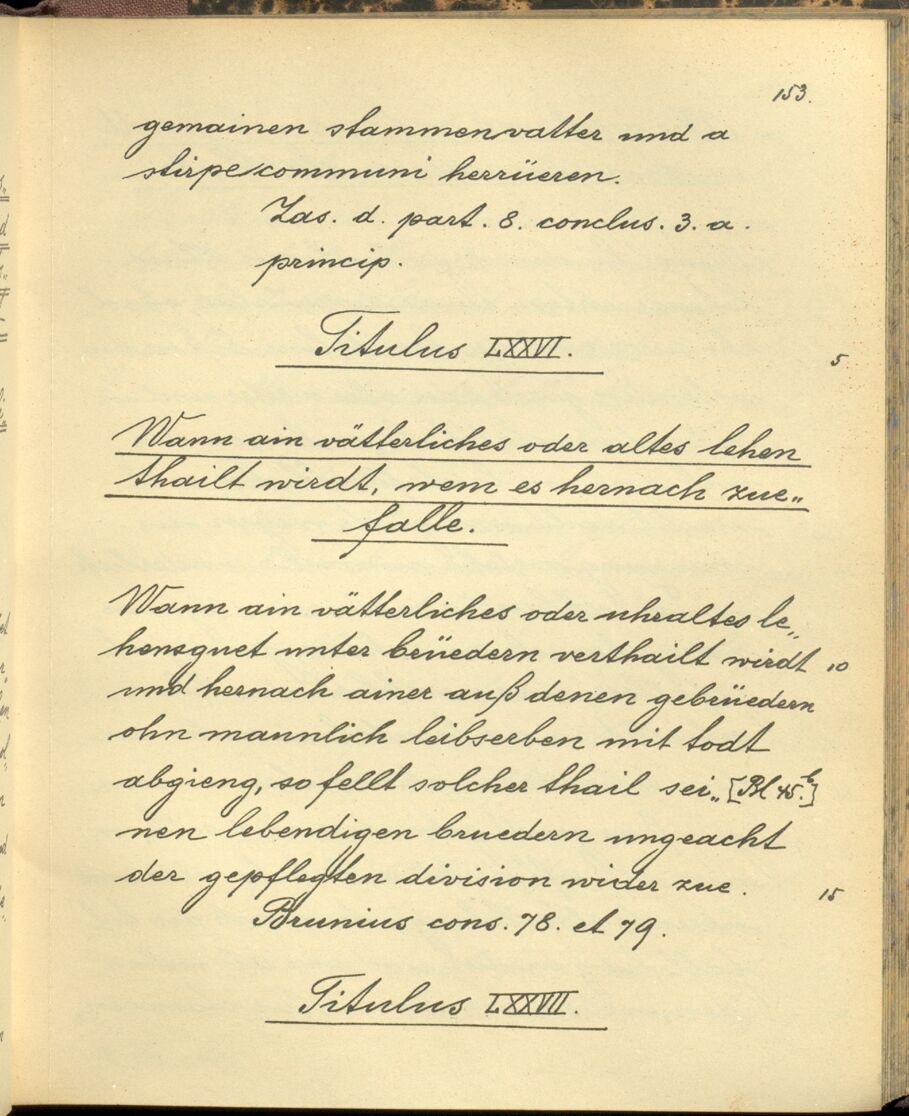 153.
gemainen stammenvatter und a
stirpe communi herrüeren.
Zas. d. part. 8. conclus. 3. a.
princip.
Titulus LXXVI.
5
Wann ain vätterliches oder altes lehen
thailt wirdt, wem es hernach zue„
falle.
Wann ain vätterliches oder uhraltes le„
hensguet unter brüedern verthailt wirdt 10
und hernach ainer auß denen gebrüedern
ohn mannlich leibserben mit todt
abgieng, so fellt solcher thail sei„ [Bl 45.b]
nen lebendigen bruedern ungeacht
der gepflegten division wider zue.
15
Brunius cons. 78. et 79.
Titulus LXXVII.